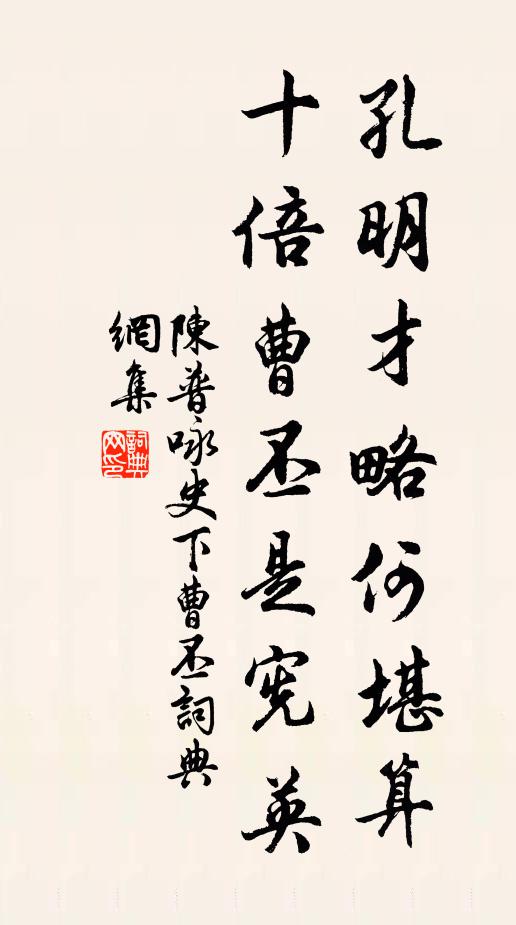 孔明才略何堪算
十倍曹丕是宪英
陳普咏史下曹丕詞典
網集
詞典
网印